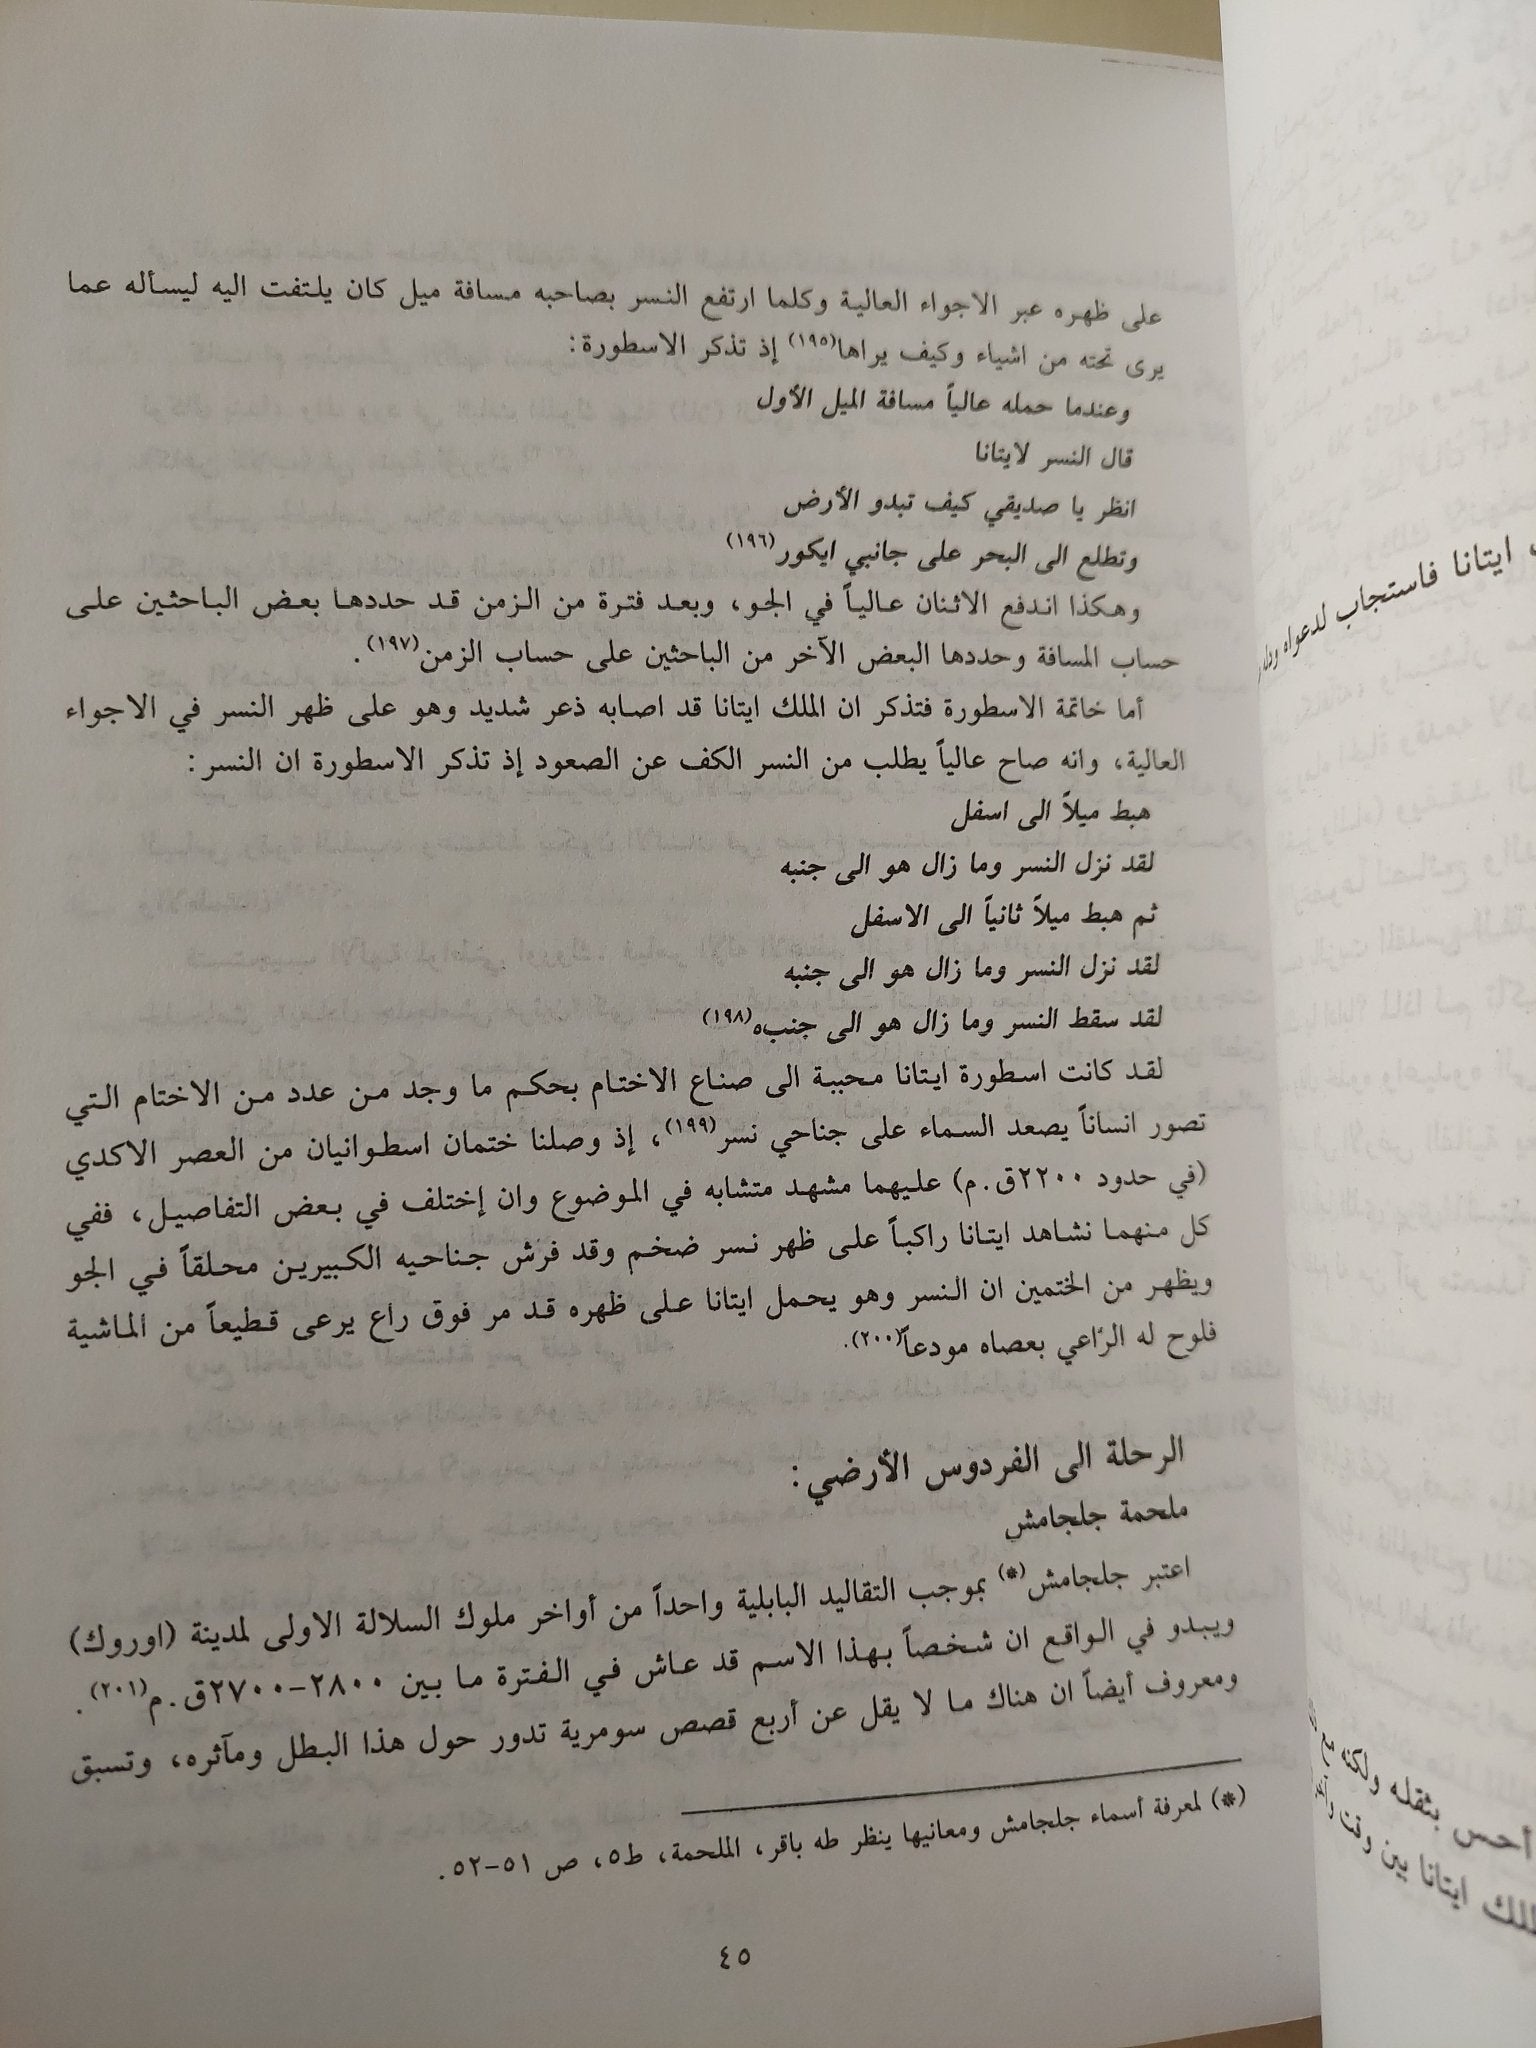 على ظهره عبر الاجواء العالية وكلما ارتفع النسر بصاحبه مسافة ميل كان يلتفت اليه ليسأله عما
يرى تحته من اشياء وكيف يراها(١٩٥) إذ تذكر الاسطورة:
وعندما حمله عالياً مسافة الميل الأول
قال النسر لايتانا
انظر يا صديقي كيف تبدو الأرض
وتطلع الى البحر على جانبي ايكور(١٩٦)
وهكذا اندفع الاثنان عالياً في الجو، وبعد فترة من الزمن قد حددها بعض الباحثين على
حساب المسافة وحددها البعض الآخر من الباحثين على حساب الزمن(١٩٧).
أما خاتمة الاسطورة فتذكر ان الملك ايتانا قد اصابه ذعر شديد وهو على ظهر النسر في الاجواء
العالية، وانه صاح عالياً يطلب من النسر الكف عن الصعود إذ تذكر الاسطورة ان النسر:
هبط ميلاً الى اسفل
لقد نزل النسر وما زال هو الى جنبه
ثم هبط ميلاً ثانياً الى الاسفل
لقد نزل النسر وما زال هو الى جنبه
لقد سقط النسر وما زال هو الى جنبه(١٩٨)
لقد كانت اسطورة ايتانا محببة الى صناع الاختام بحكم ما وجد من عدد من الاختام التي
تصور انساناً يصعد السماء على جناحي نسر(١٩٩)، إذ وصلنا ختمان اسطوانيان من العصر الاكدي
(في حدود ٢٢٠٠ق.م) عليهما مشهد متشابه في الموضوع وان إختلف في بعض التفاصيل، ففي
كل منهما نشاهد ايتانا راكباً على ظهر نسر ضخم وقد فرش جناحيه الكبيرين محلقاً في الجو
ويظهر من الختمين ان النسر وهو يحمل ايتانا على ظهره قد مر فوق راع يرعى قطيعاً من الماشية
فلوح له الرّاعي بعصاه مودعاً(٢٠٠).
الرحلة الى الفردوس الأرضي:
ملحمة جلجامش
اعتبر جلجامش(*) بموجب التقاليد البابلية واحداً من أواخر ملوك السلالة الاولى لمدينة (اوروك)
ويبدو في الواقع ان شخصاً بهذا الاسم قد عاش في الفترة ما بين ٢٨٠٠-٢٧٠٠ق.م(٢٠١).
ومعروف أيضاً ان هناك ما لا يقل عن أربع قصص سومرية تدور حول هذا البطل ومآثره، وتسبق
(*) لمعرفة أسماء جلجامش ومعانيها ينظر طه باقر، الملحمة، ط٥، ص ٥١-٥٢.
٤٥
ايتانا فاستجاب لدعواه
أحس بثقله ولكنه
ايتانا بين وقت